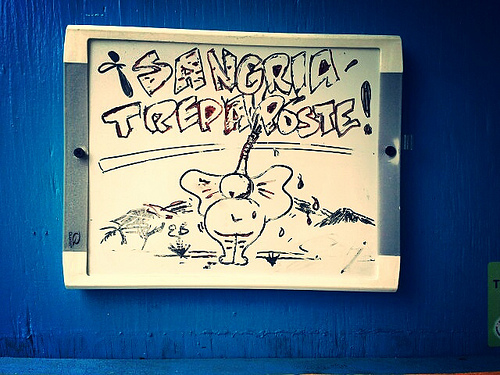 ¡SANGRIA
TREPAPOSTE!
EB
T